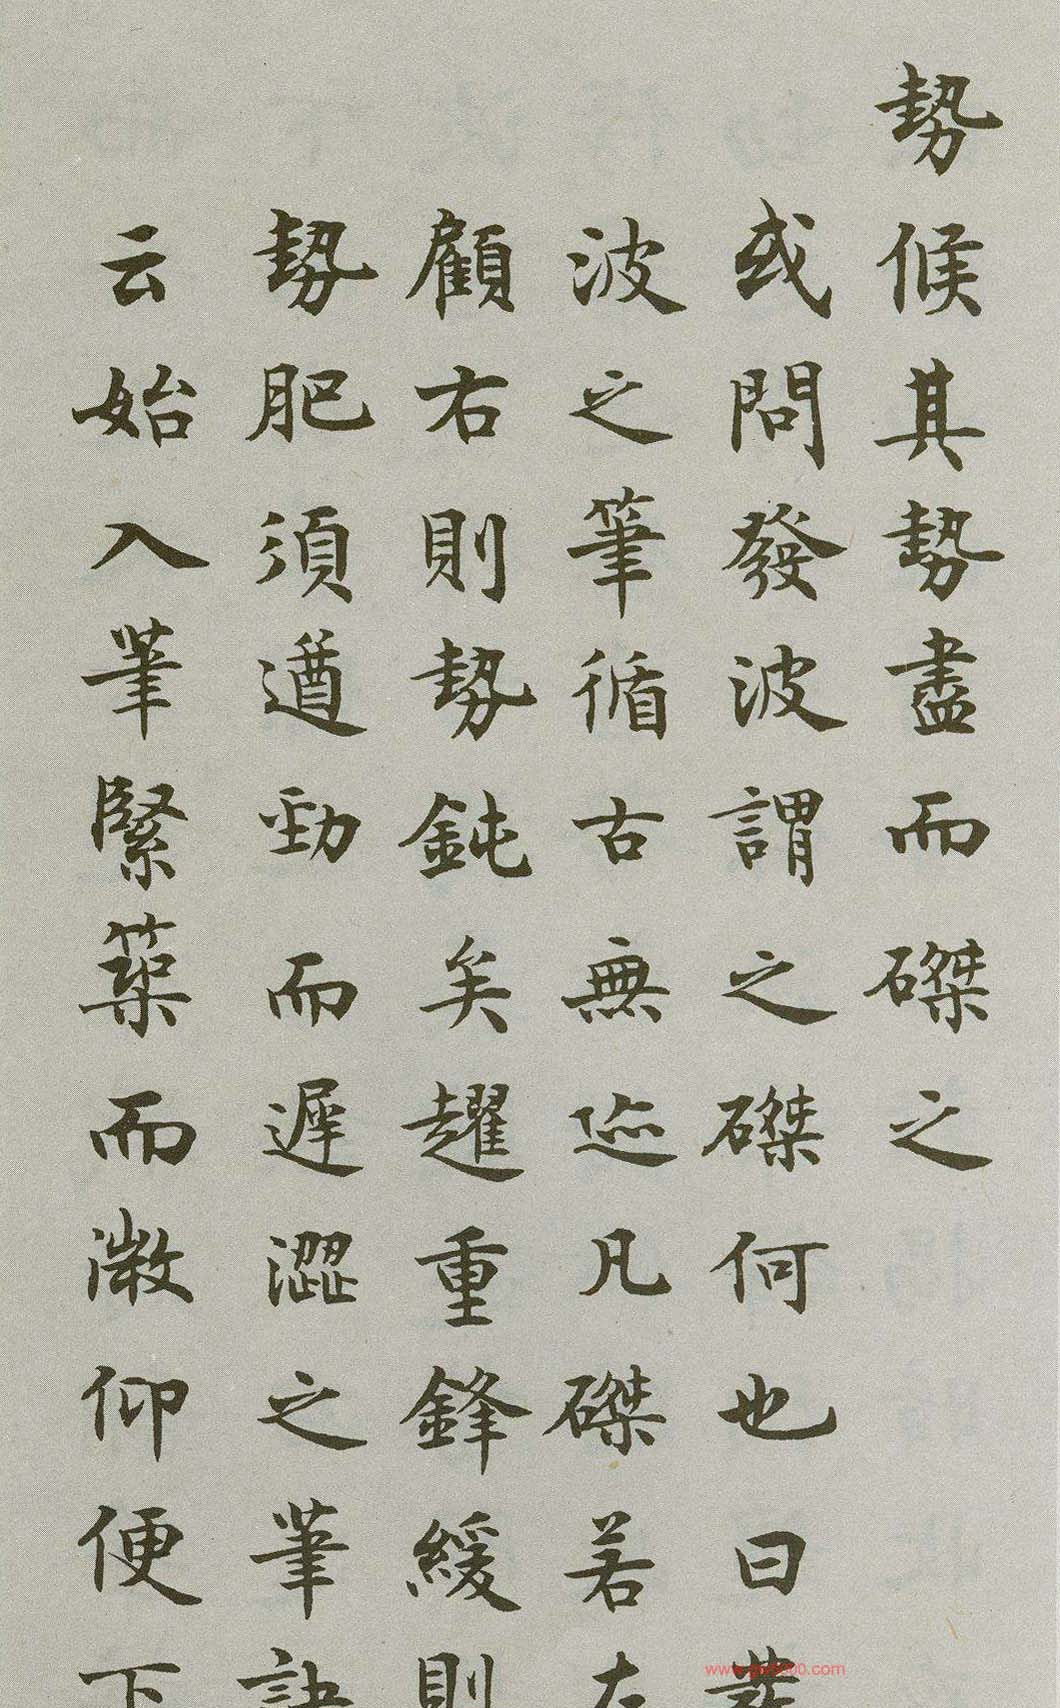 勢候其勢盡而磔之
或問發波謂之磔何也曰
波之筆循古無迹凡磔若左
顧右則勢鈍矣趯重鋒緩則
勢肥須遒勁而遲澀之筆訣
云始入筆緊築而微仰便下